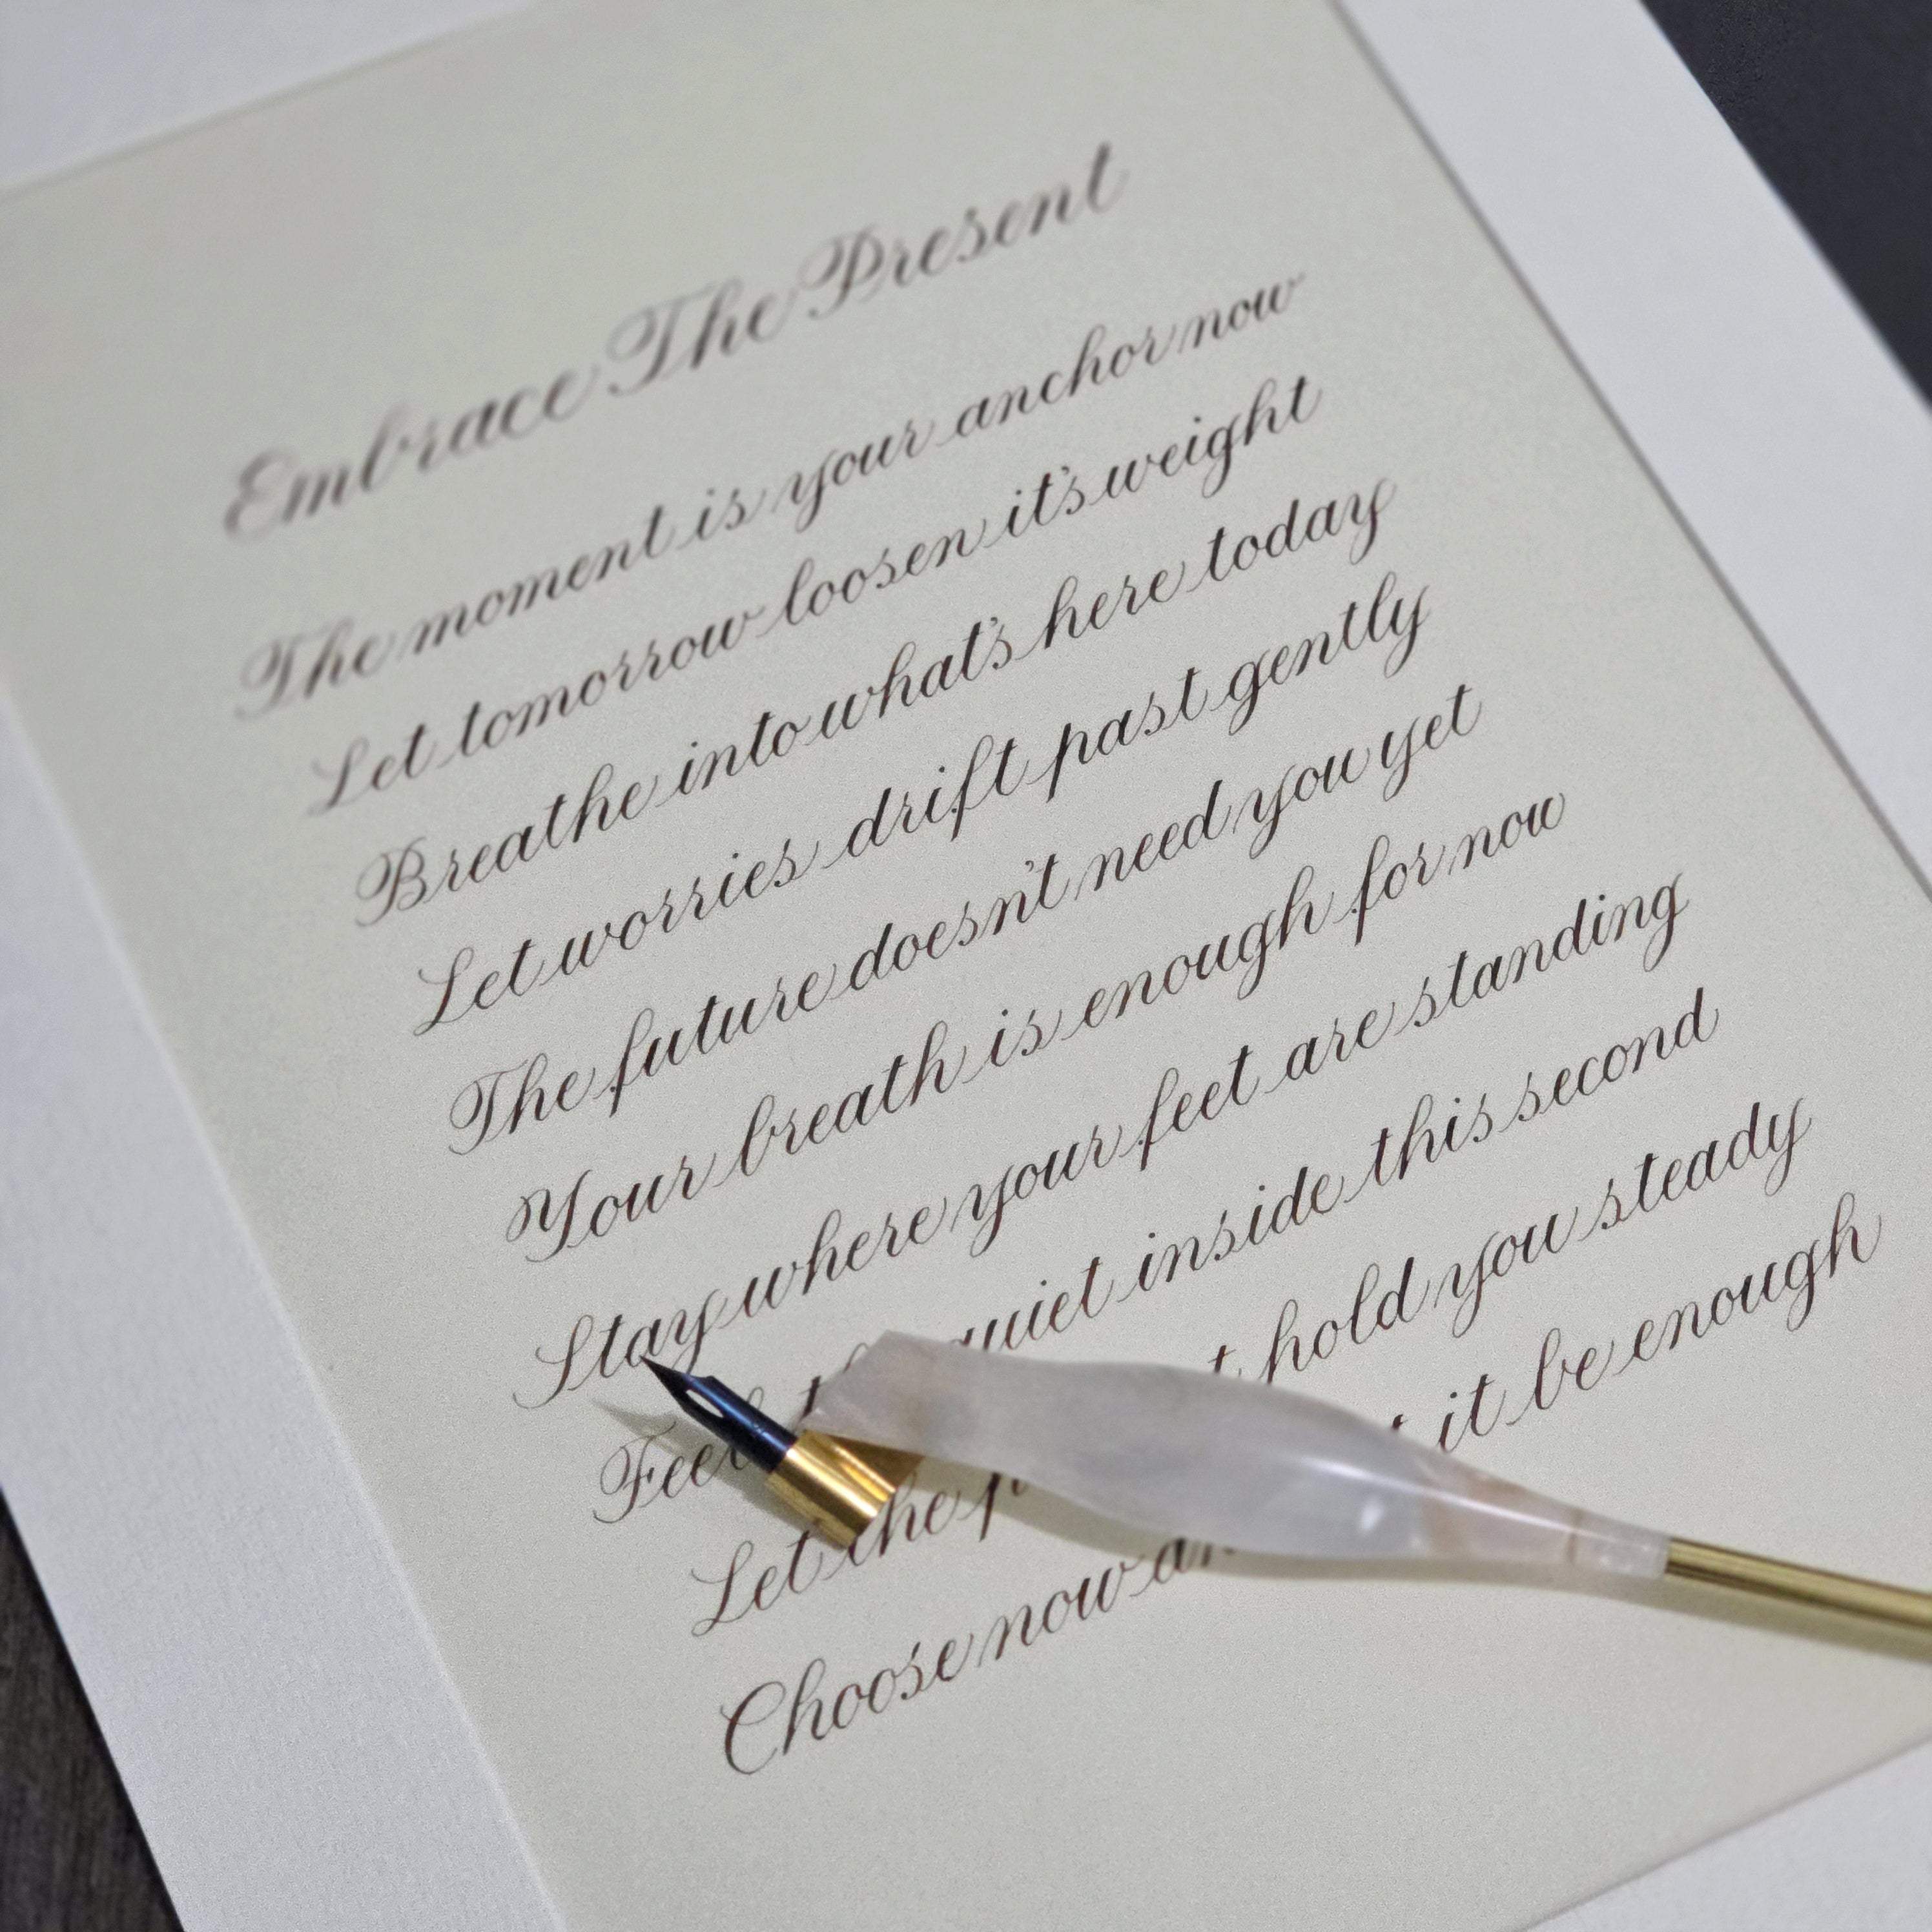 Embrace The Present
The moment is your anchor now
Let tomorrow loosen it's weight
Breathe into what's here today
Let worries drift past gently
The future doesn't need you yet
Your breath is enough for now
Stay where your feet are standing
Feel quiet inside this second
Let the hold you steady
Choose now it be enough